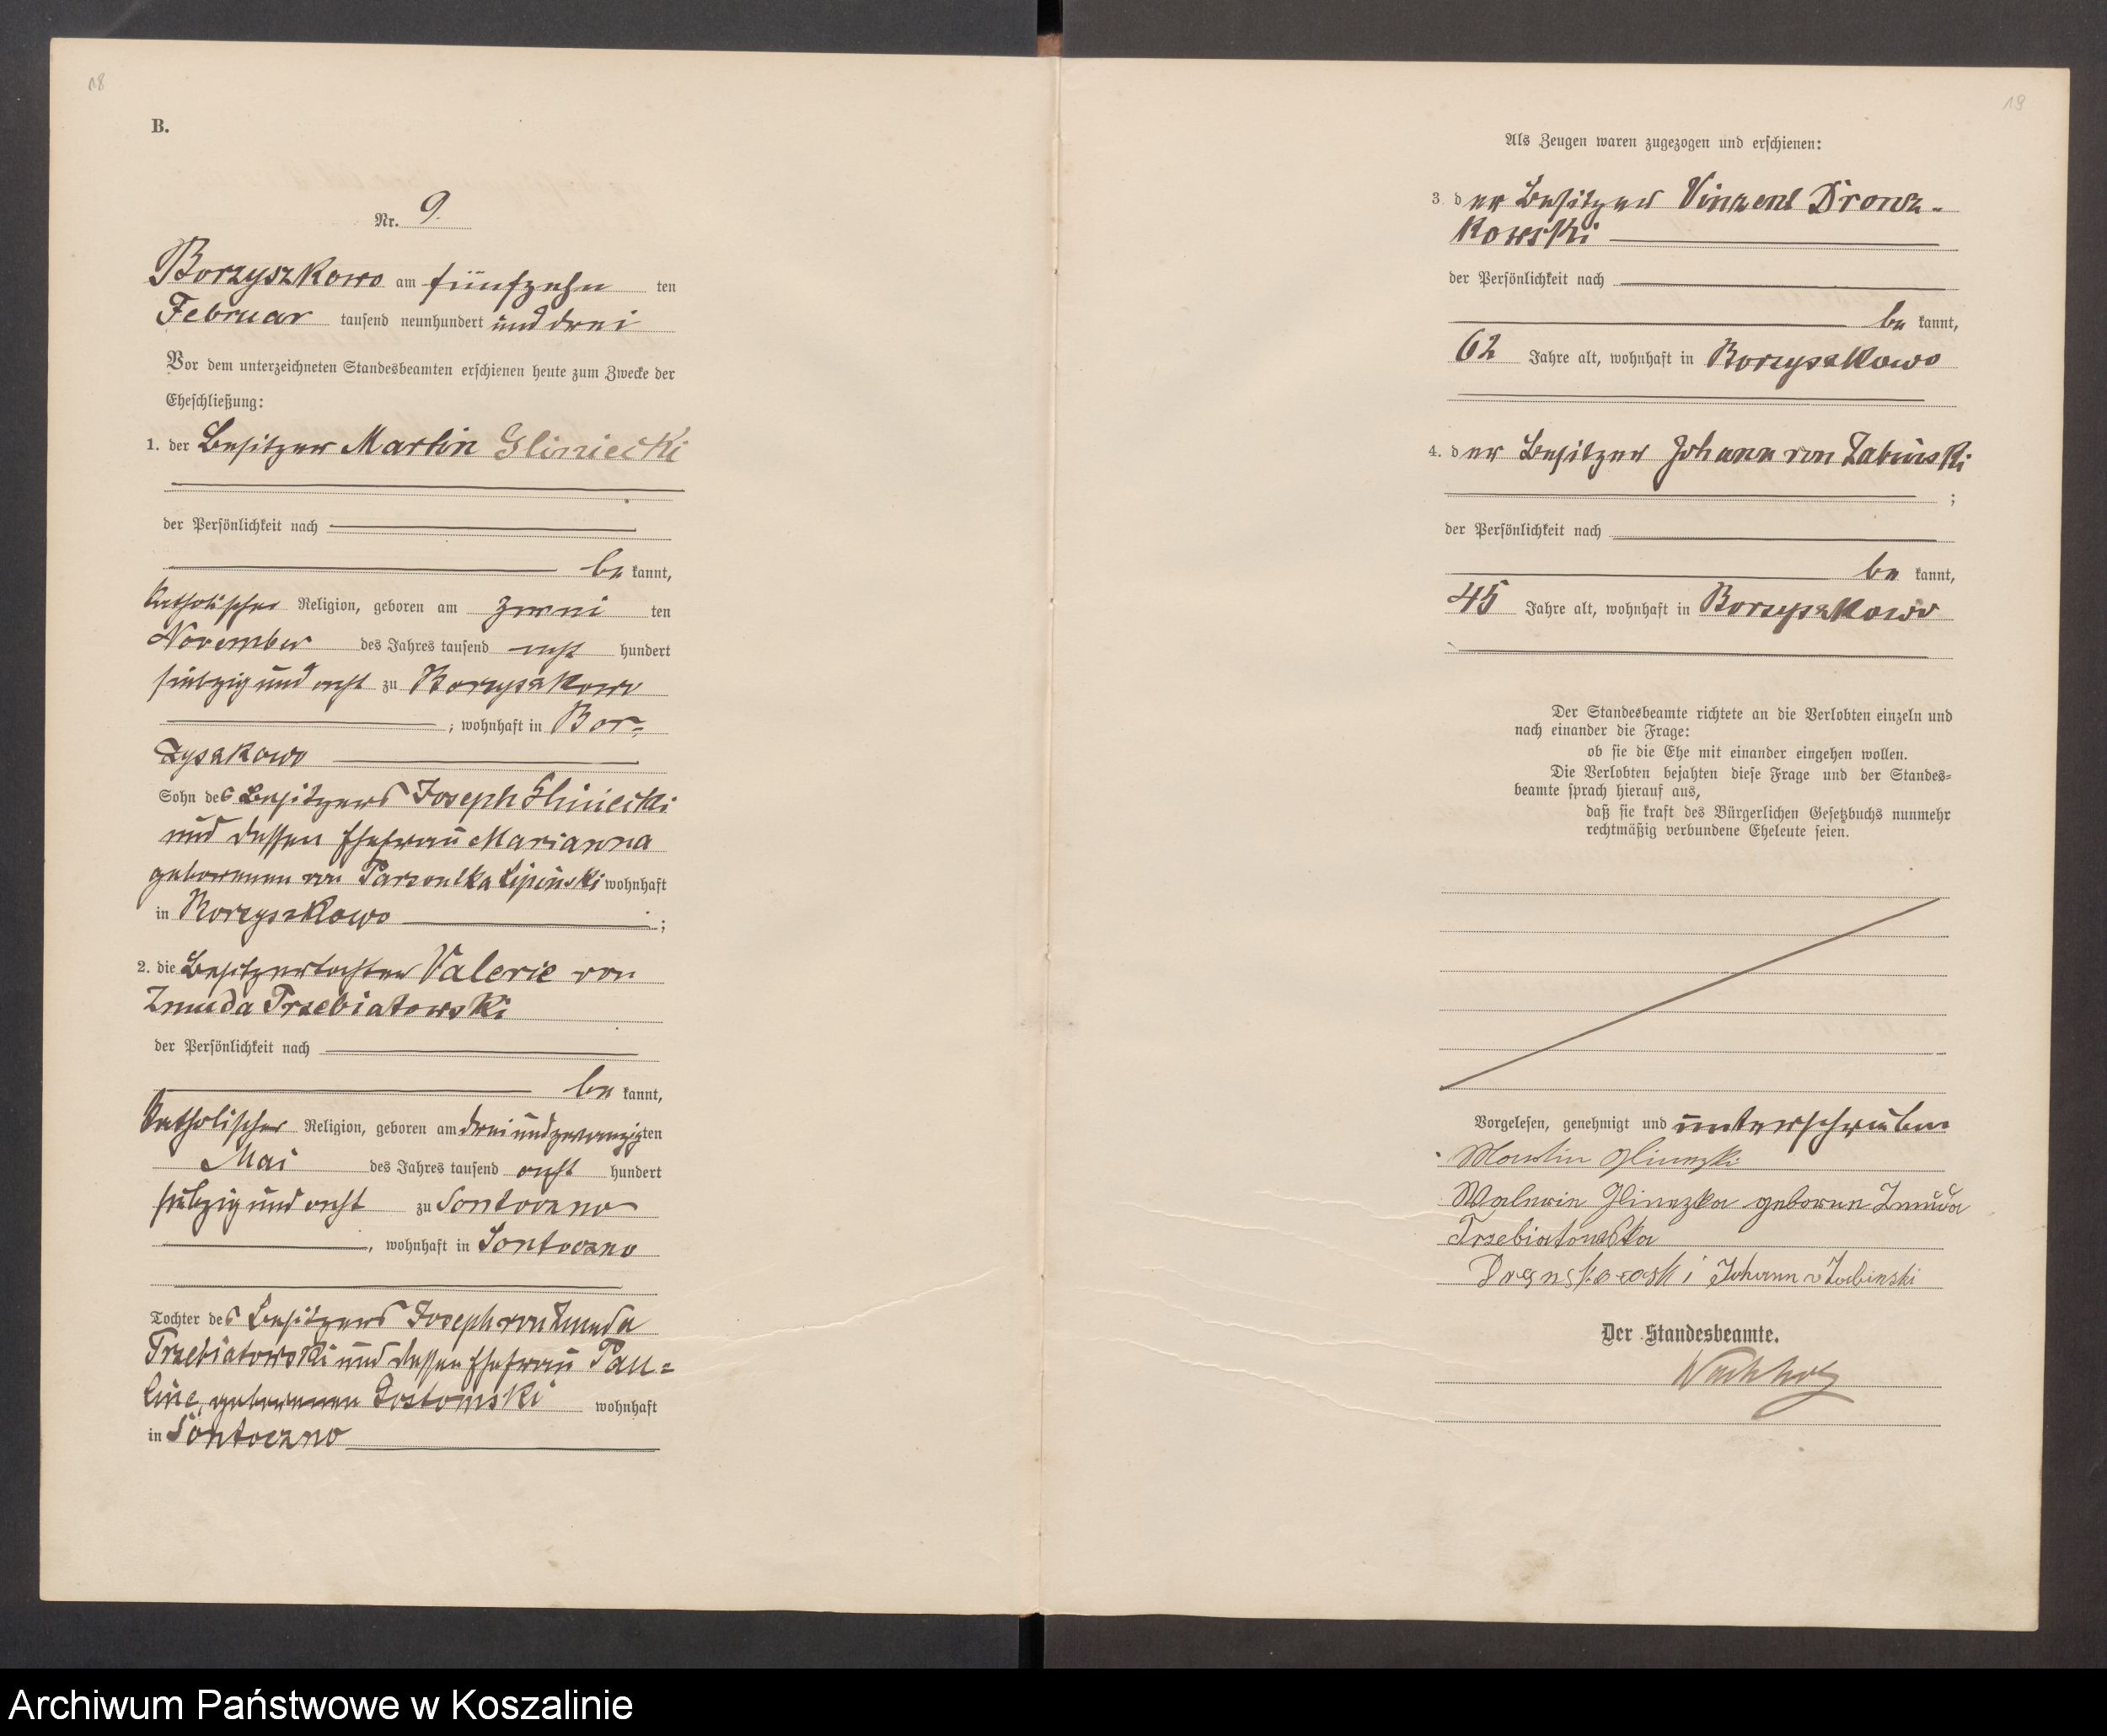 18
B.
Nr. 9.
Borzyszkowo am fünfzehn ten
Februar tausend neunhundert und drei
Vor dem unterzeichneten Standesbeamten erschienen heute zum Zwecke der
Eheschließung:
1. der Besitzer Martin Gliniecki
der Persönlichkeit nach
be kannt,
katholischer Religion, geboren am zwei ten
November des Jahres tausend acht hundert
siebzig und acht zu Borzyszkowo
; wohnhaft in Bor-
zyszkowo
Sohn des Besitzers Joseph Gliniecki
und dessen Ehefrau Marianna
geborenen von Parzontka Lipinski wohnhaft
in Borzyszkowo ;
2. die Besitzertochter Valerie von
Zmuda Trzebiatowski
der Persönlichkeit nach
be kannt,
katholischer Religion, geboren am dreiundzwanzigten
Mai des Jahres tausend acht hundert
siebzig und acht zu Sontoczno
, wohnhaft in Sontoczno
Tochter des Besitzers Joseph von Zmuda
Trzebiatowski und dessen Ehefrau Pau=
line, geborenen Gostomski wohnhaft
in Sontoczno
19
Als Zeugen waren zugezogen und erschienen:
3. der Besitzer Vinzent Dronz-
kowski
der Persönlichkeit nach
be kannt,
62 Jahre alt, wohnhaft in Borzyszkowo
4. der Besitzer Johann von Zabinski
;
der Persönlichkeit nach
be kannt,
45 Jahre alt, wohnhaft in Borzyszkowo
Der Standesbeamte richtete an die Verlobten einzeln und
nach einander die Frage:
ob sie die Ehe mit einander eingehen wollen.
Die Verlobten bejahten diese Frage und der Standes=
beamte sprach hierauf aus,
daß sie kraft des Bürgerlichen Gesetzbuchs nunmehr
rechtmäßig verbundene Eheleute seien.
Vorgelesen, genehmigt und unterschrieben
Martin Glinezki
Walerie Glinezka geborene Zmuda
Trzebiatowska
Johann v Zabinski
Der Standesbeamte.
Archiwum Państwowe w Koszalinie